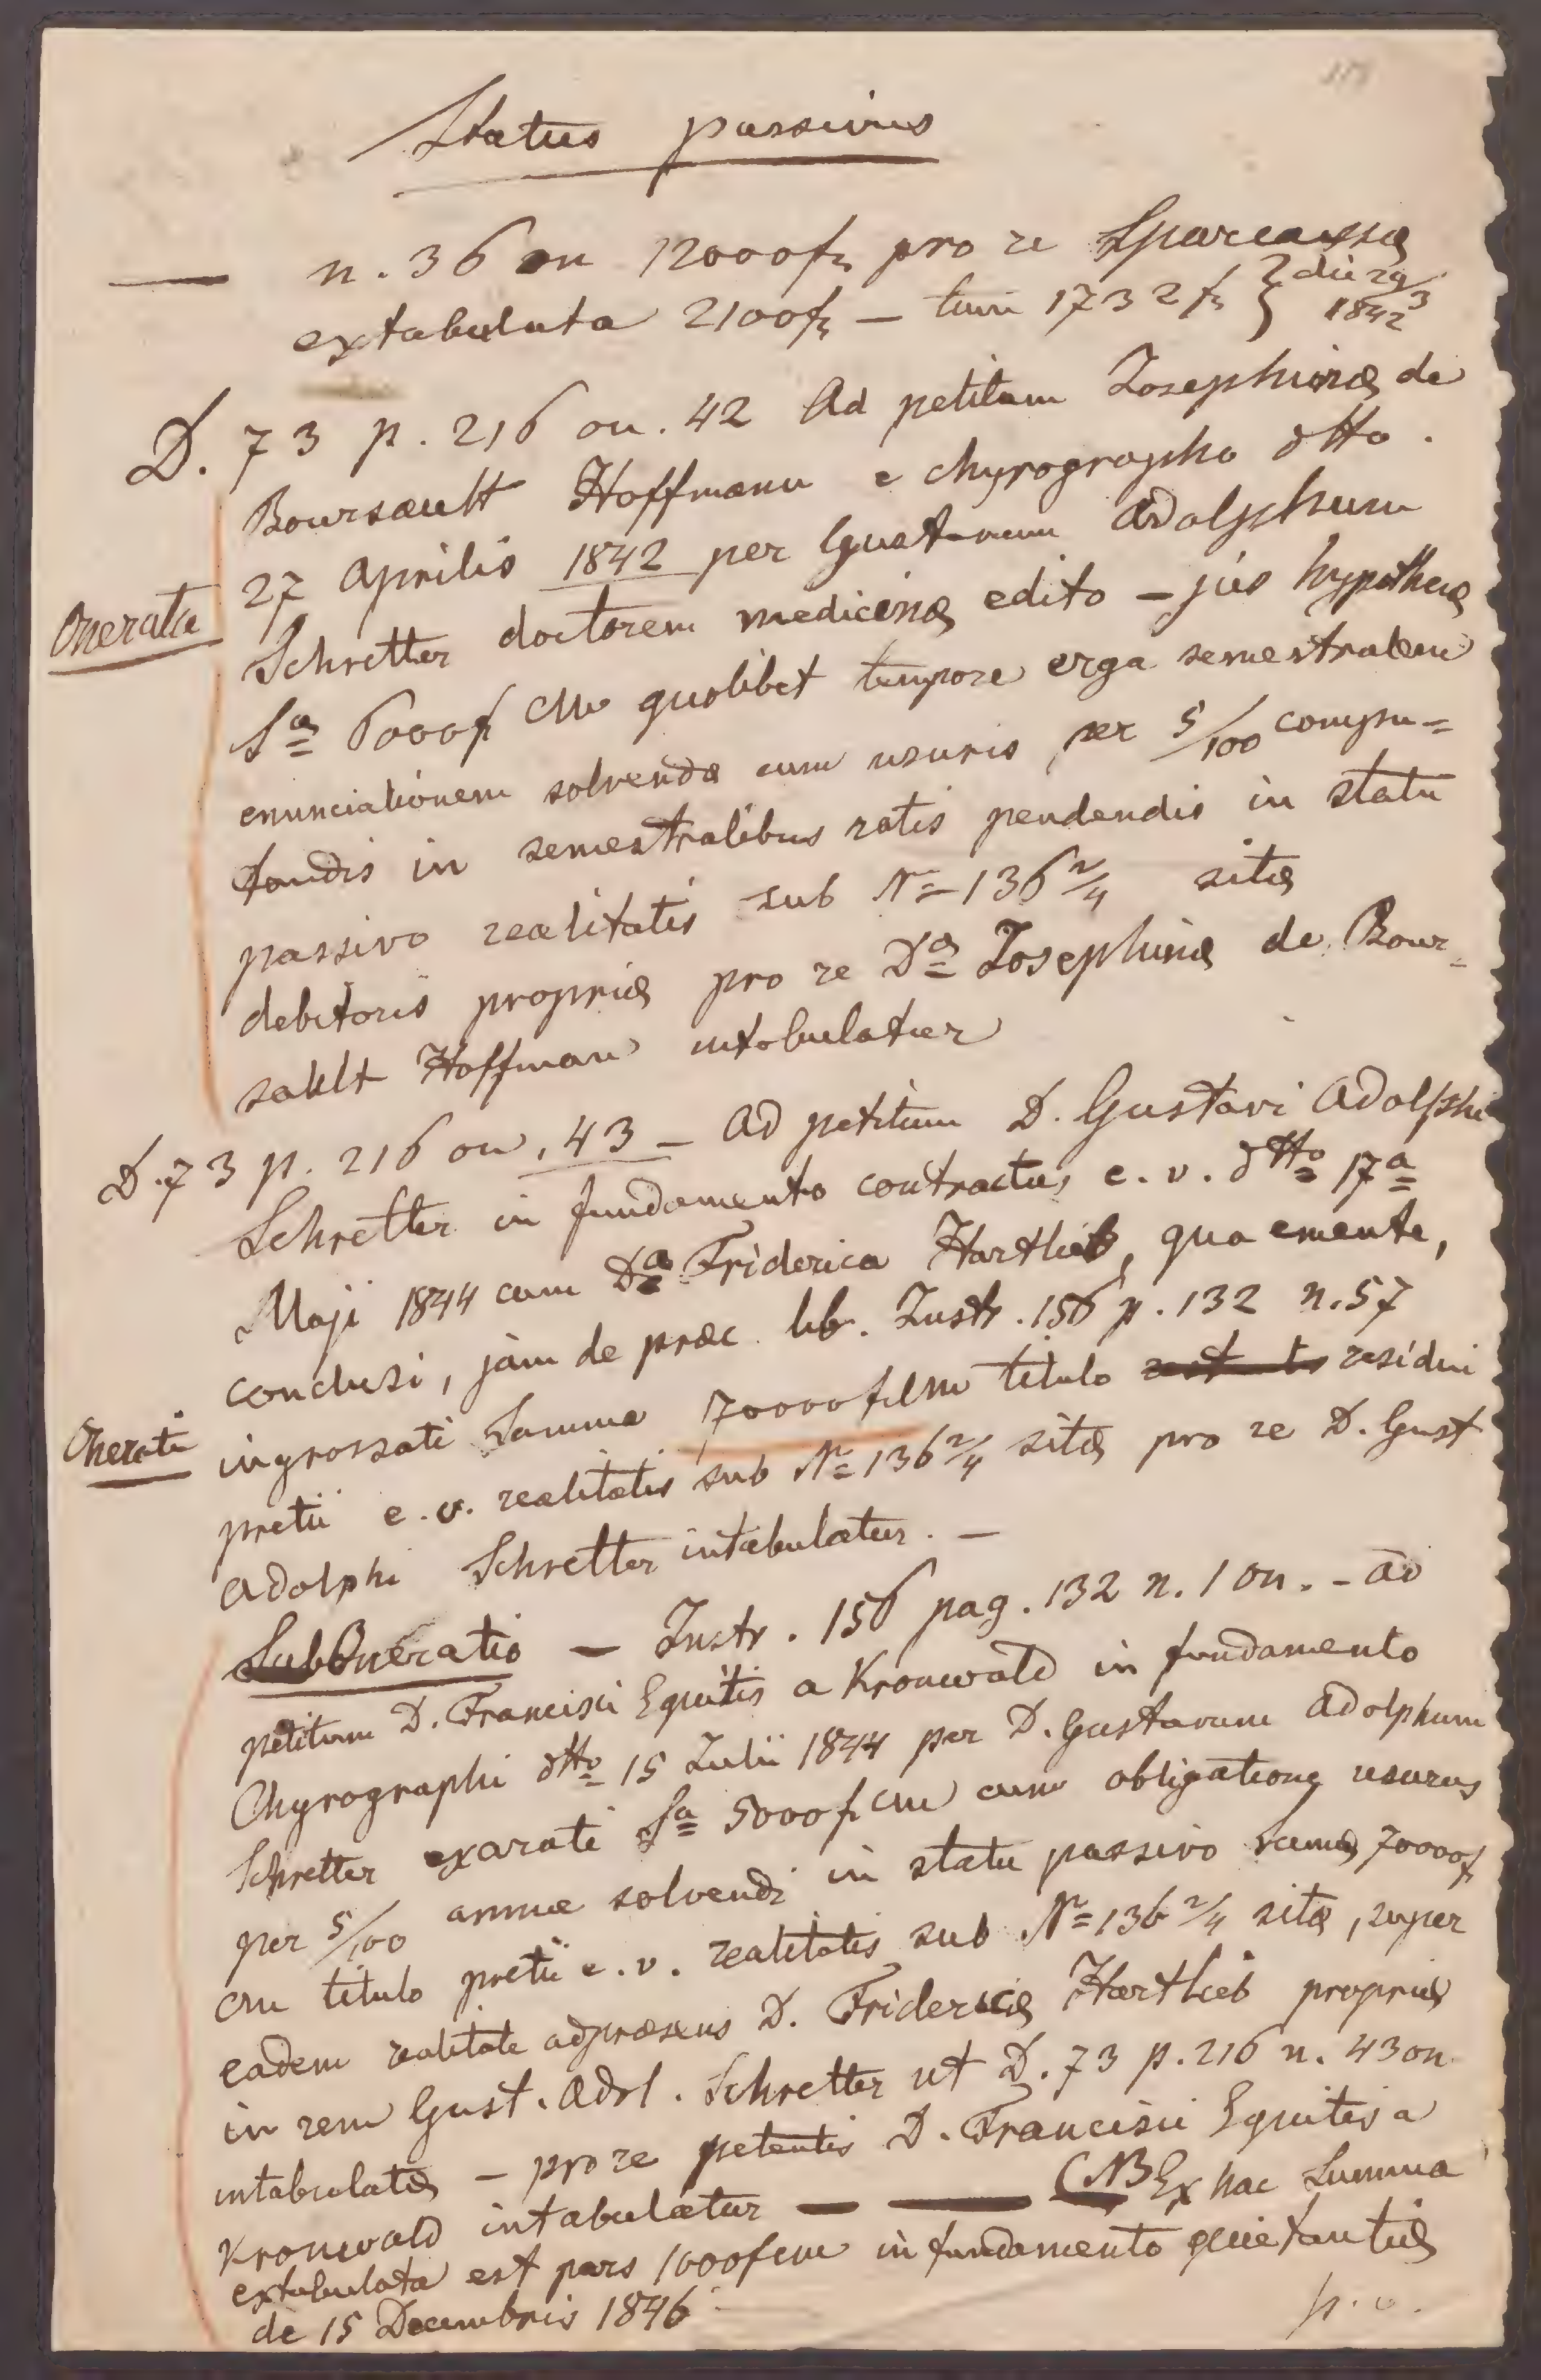 Status passivus
— n. 36 on 12000 fr pro re Sparcassæ
extabulata 2100 fr — tum 1732 fr } die 29/3 1842
D. 73 p. 216 on. 42 Ad petitum Josephinæ de
Boursault Hoffmann e chyrographo dtto.
27 Aprilis 1842 per Gustavum Adolphum
Onerata
Schretter doctorem medicinæ edito — jus hypothecæ
Sæ 6000 f CM quolibet tempore erga semestralem
enunciationem solvendæ cum usuris per 5/100 compu=
tandis in semestralibus ratis pendendis in statu
passivo realitatis sub No 136 2/4 sitæ
debitoris propriæ pro re Dæ Josephinæ de Bour-
sault Hoffman intabulatur
D. 73 p. 216 on. 43 — Ad petitum D. Gustavi Adolphi
Schretter in fundamento contractus e. v. dtto 17a
Maji 1844 cum Da Friderica Hartlieb, qua emente,
conclusi, jam de præc. lib. Instr. 156 p. 132 n. 57
ingrossati Summa 70000 f CM titulo residui
Onerati
pretii e. v. realitatis sub No 136 2/4 sitæ pro re D. Gust
Adolphi Schretter intabulatur. —
SubOneratio — Instr. 156 pag. 132 n. 1 on. - ad
petitum D. Francisci Equitis a Kronwald in fundamento
Chyrographi dtto 15 Julii 1844 per D. Gustavum Adolphum
Schretter exarati Sa 5000 f CM cum obligatione usuras
per 5/100 annuæ solvendi in statu passivo Summæ 70000 f
CM titulo pretii e. v. realitatis sub No 136 2/4 sitæ, super
eadem realitate adpræsens D. Fridericæ Hartlieb propriæ
in rem Gust. Adol. Schretter ut D. 73 p. 216 n. 43 on
intabulatæ — pro re petentis D. Francisci Equitis a
Kronwald intabulatur — — (NB Ex hac Summa
extabulata est pars 1000 f CM in fundamento quietantiæ
de 15 Decembris 1846